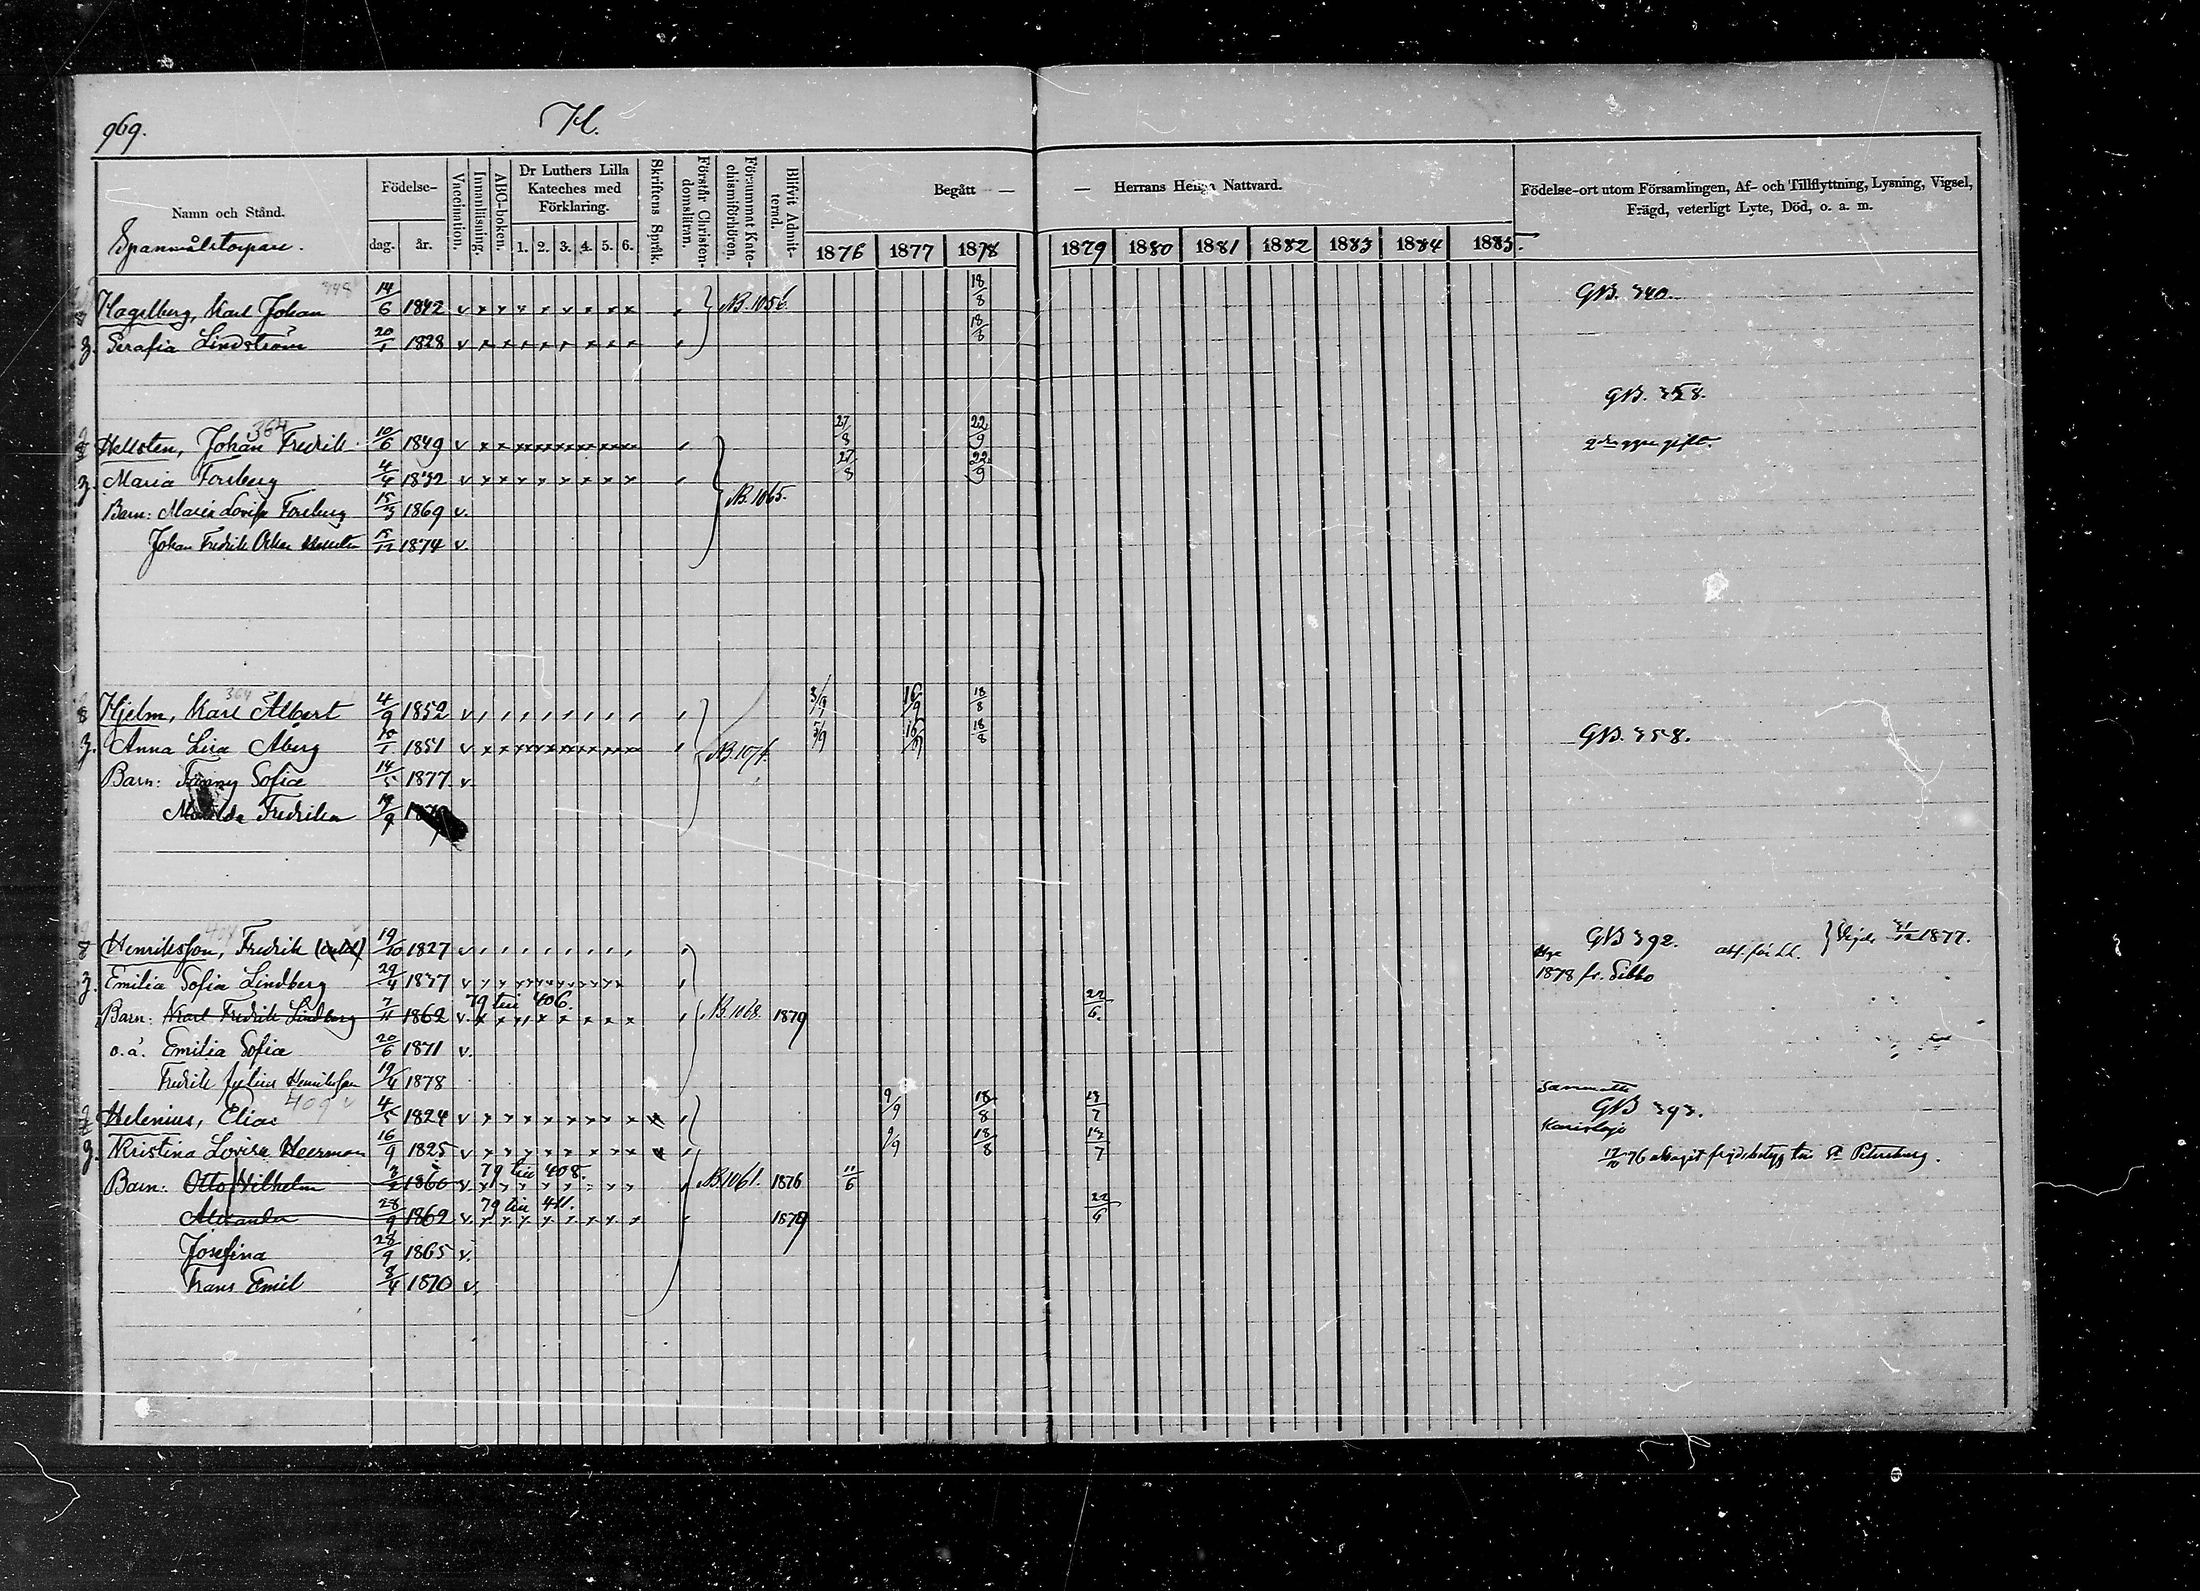 969.
H.
Namn och Stånd.
Födelse-
dag.
år.
Vaccination.
Innanläsning.
ABC-boken.
Dr Luthers Lilla
Kateches med
Förklaring.
1. 2. 3. 4. 5. 6.
Skriftens Språk.
Förstår Christen-
domsläran.
Försummat Kate-
chismiförhören.
Blifvit Admit-
terad.
Begått —
— Herrans Heliga Nattvard.
1876 1877 1878 1879 1880 1881 1882 1883 1884 1885.
Födelse-ort utom Församlingen, Af- och Tillflyttning, Lysning, Vigsel,
Frägd, veterligt Lyte, Död, o. a. m.
348
Hagelberg, Karl Johan 14/6 1842 v NB. 1056. 18/8 GB. 340.
Serafia Lindström 20/1 1828 v 18/8
GB. 358.
364
Hellsten, Johan Fredrik 10/6 1849 v 27/8 22/9
Maria Forsberg 4/4 1832 v 27/8 22/9
Barn: Maria Lovisa Forsberg 15/3 1869 v. NB. 1065.
Johan Fredrik Oskar Hellsten 15/12 1874 v.
364
Hjelm, Karl Albert 4/9 1852 v 3/9 16/9 18/8
Anna Lisa Åberg 1851 v 3/9 16/9 18/8 GB. 358.
Barn: Fanny Sofia 14/5 1877. v.
Matilda Fredrika
Henriksson, Fredrik 19/10 1827 v GB 392. 1877.
Emilia Sofia Lindberg 29/4 1837 v 1878 fr. Sibbo
79 till 406.
Barn: Karl Fredrik Lindberg 7/11 1862 v. NB. 1068. 1879 22/6.
o.ä. Emilia Sofia 20/6 1871 v.
Fredrik Julius Henriksson 19/4 1878
409 v
Sammatti
Helenius, Elias 4/5 1824 v 9/9 18/8 13/7 GB 393.
Karislojo
Kristina Lovisa Heerman 16/9 1825 v 9/9 18/8 13/7
79 till 408.
Barn: Otto Wilhelm 1860 v NB 1061. 1876 11/6
79 till 411.
Alexander 28/9 1862 v. 1879 22/6
Josefina 28/9 1865 v.
Frans Emil 8/4 1870 v.